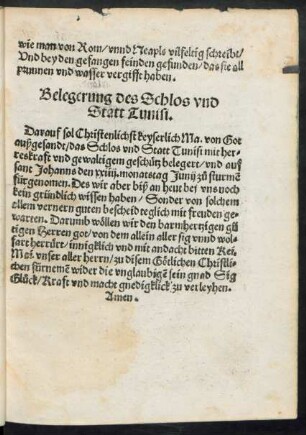 wie man von Rom/ vnnd Neapls vilfeltig schreibt/
Vnd bey den gefangen feinden gefunden/ das sie all
prunnen vnd wasser vergifft haben.
Belegerung des Schlos vnd
Statt Tunisi.
Darauf sol Christenlichst keyserlich Ma. von Got
außgesandt/ das Schlos vnd Statt Tunisi mit her
reskraft vnd gewaltigem geschütz belegert/ vnd auf
sant Johanns den xxiiij. monatstag Junij zů stürmē
fürgenomen. Des wir aber biß an heut bey vns noch
kein gründlich wissen haben/ Sonder von solchem
ellem vernern guten bescheid teglich mit freuden ge
warten. Darumb wöllen wir den barmhertzigen gü
tigen Herren got/ von dem allein aller sig vnnd wol-
fart herrürt/ inniglich vnd mit andacht bitten Kei.
Mai. vnser aller herrn/ zu disem Götlichen Christli-
chen fürnemē wider die vnglaubigē sein gnad Sig
Glück/ Kraft vnd macht gnedigklich zu verleyhen.
Amen.